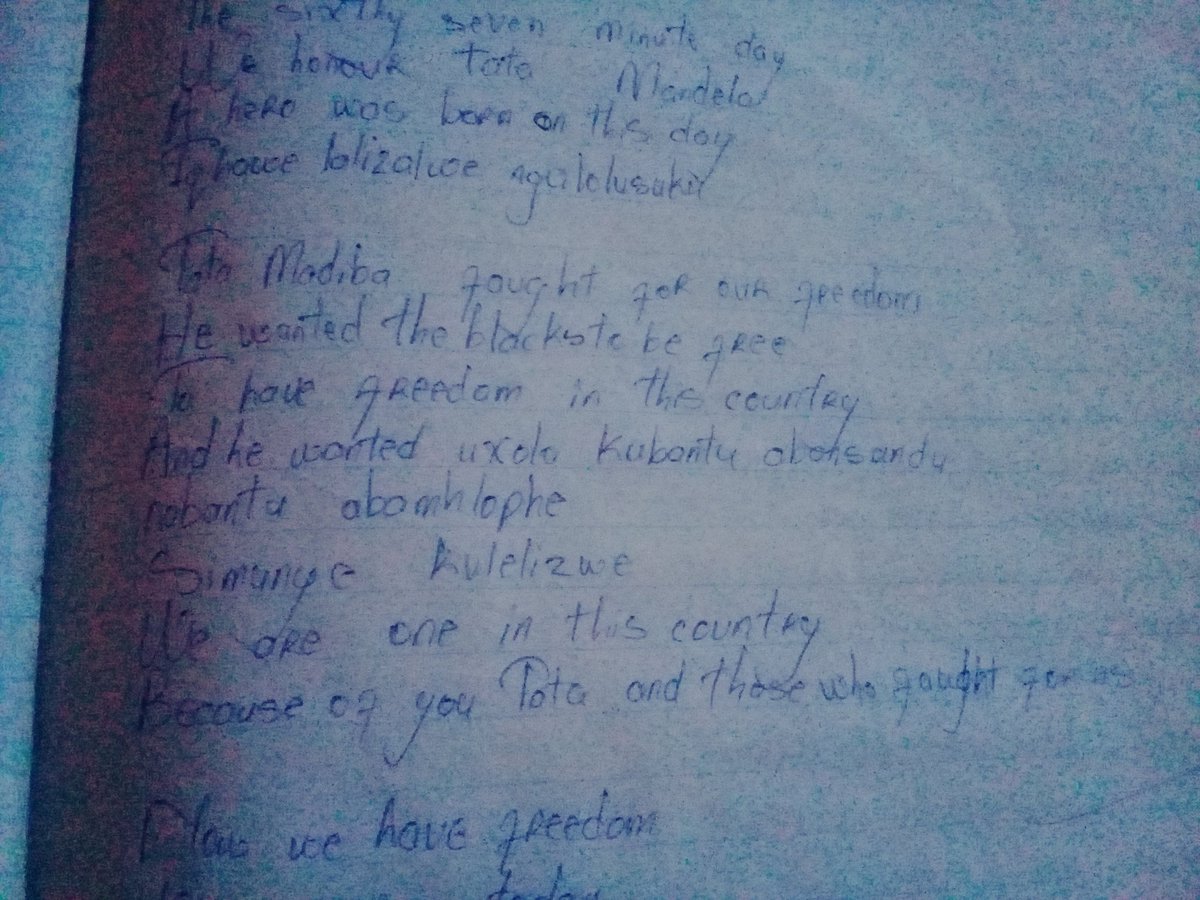 The sixthy seven minute day
We honour Tata Mandela
A hero was born on this day
Iqhawe lalizalwe ngalolusuku
Tata Madiba fought for our freedom
He wanted the blacks to be free
To have freedom in this country
And he wanted uxolo kubantu abansundu
nabantu abamhlophe
Simunye kulelizwe
We are one in this country
Because of you Tata and those who fought for us
Now we have freedom
today